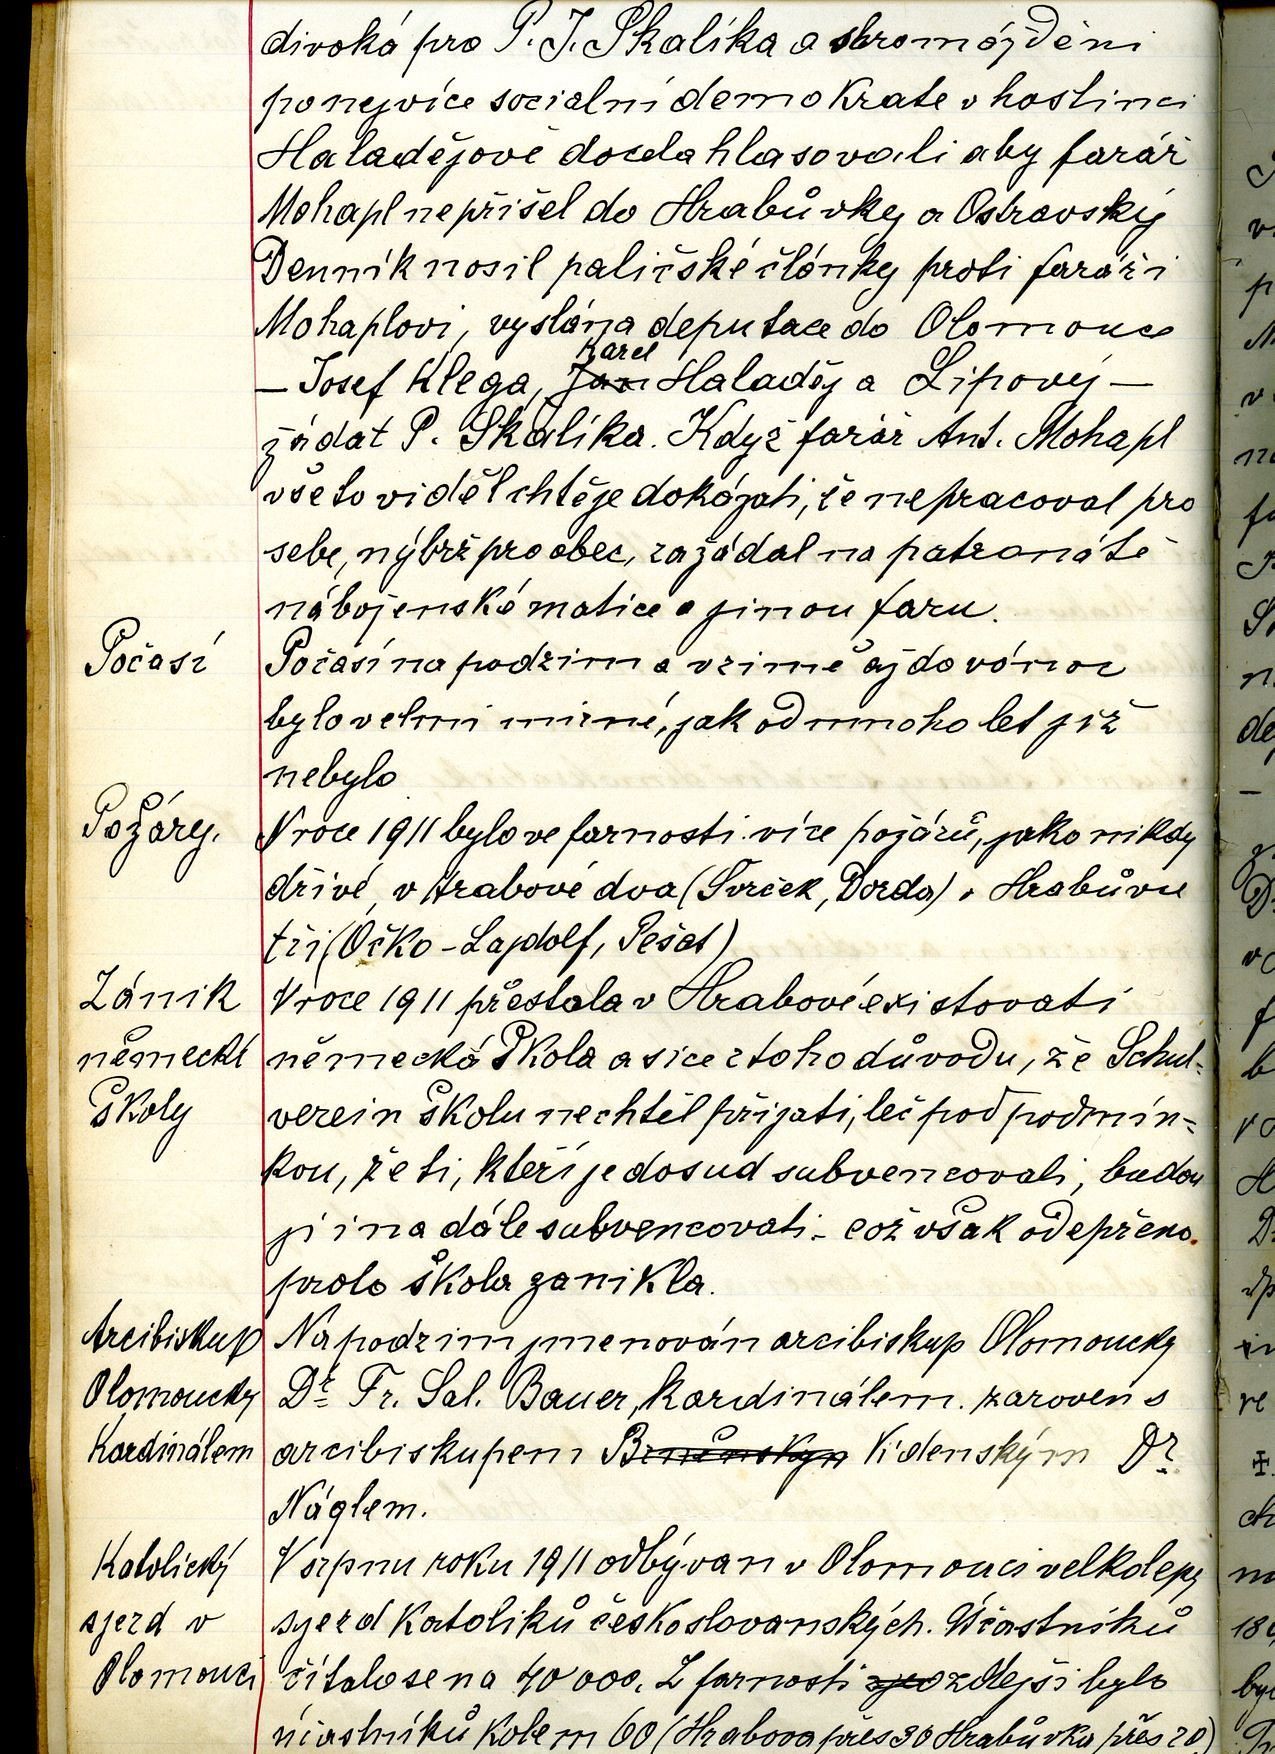 divoká pro P. J. Skalíka a shromáždění
ponejvíce socialní demokraté v hostinci
Haladějově docela hlasovali aby farář
Mohapl nepřišel do Hrabůvky a Ostravský
Denník nosil paličské články proti faráři
Mohaplovi, vyslána deputace do Olomouce
Karel
– Josef Klega, Jan Haladěj a Lipový –
žádat P. Skalíka. Když farář Ant. Mohapl
vše to viděl chtěje dokázati, že nepracoval pro
sebe, nýbrž pro obec, zažádal na patronátě
náboženské matice o jinou faru.
Počasí
Počasí na podzim a v zimě až do vánoc
bylo velmi mírné, jak od mnoho let již
nebylo
Požáry.
V roce 1911 bylo ve farnosti více požárů, jako nikdy
dřívé, v Hrabové dva (Svrček, Dorda), Hrabůvce
tři (Očko – Lajdolf, Pešat)
Zánik
německé
školy
V roce 1911 přestala v Hrabové existovati
německá škola a sice z toho důvodu, že Schul-
verein školu nechtěl přijati, leč pod podmín-
kou, že ti, kteří je dosud subvencovali, budou
ji i na dále subvencovati – což však odepřeno.
proto škola zanikla.
Arcibiskup
Olomoucky
Kardinálem
Na podzim jmenován arcibiskup Olomoucky
Dr Fr. Sal. Bauer, kardinálem. zaroven s
arcibiskupem Brněnskym Vídenským Dr.
Náglem.
Katolický
sjezd v
Olomouci
V srpnu roku 1911 odbýván v Olomouci velkolepy
sjezd katolíků českoslovanských. Účastníků
čítalo se na 40 000. Z farnosti zdejší bylo
účastníků kolem 60 (Hrabova přes 30 Hrabůvka přes 20)